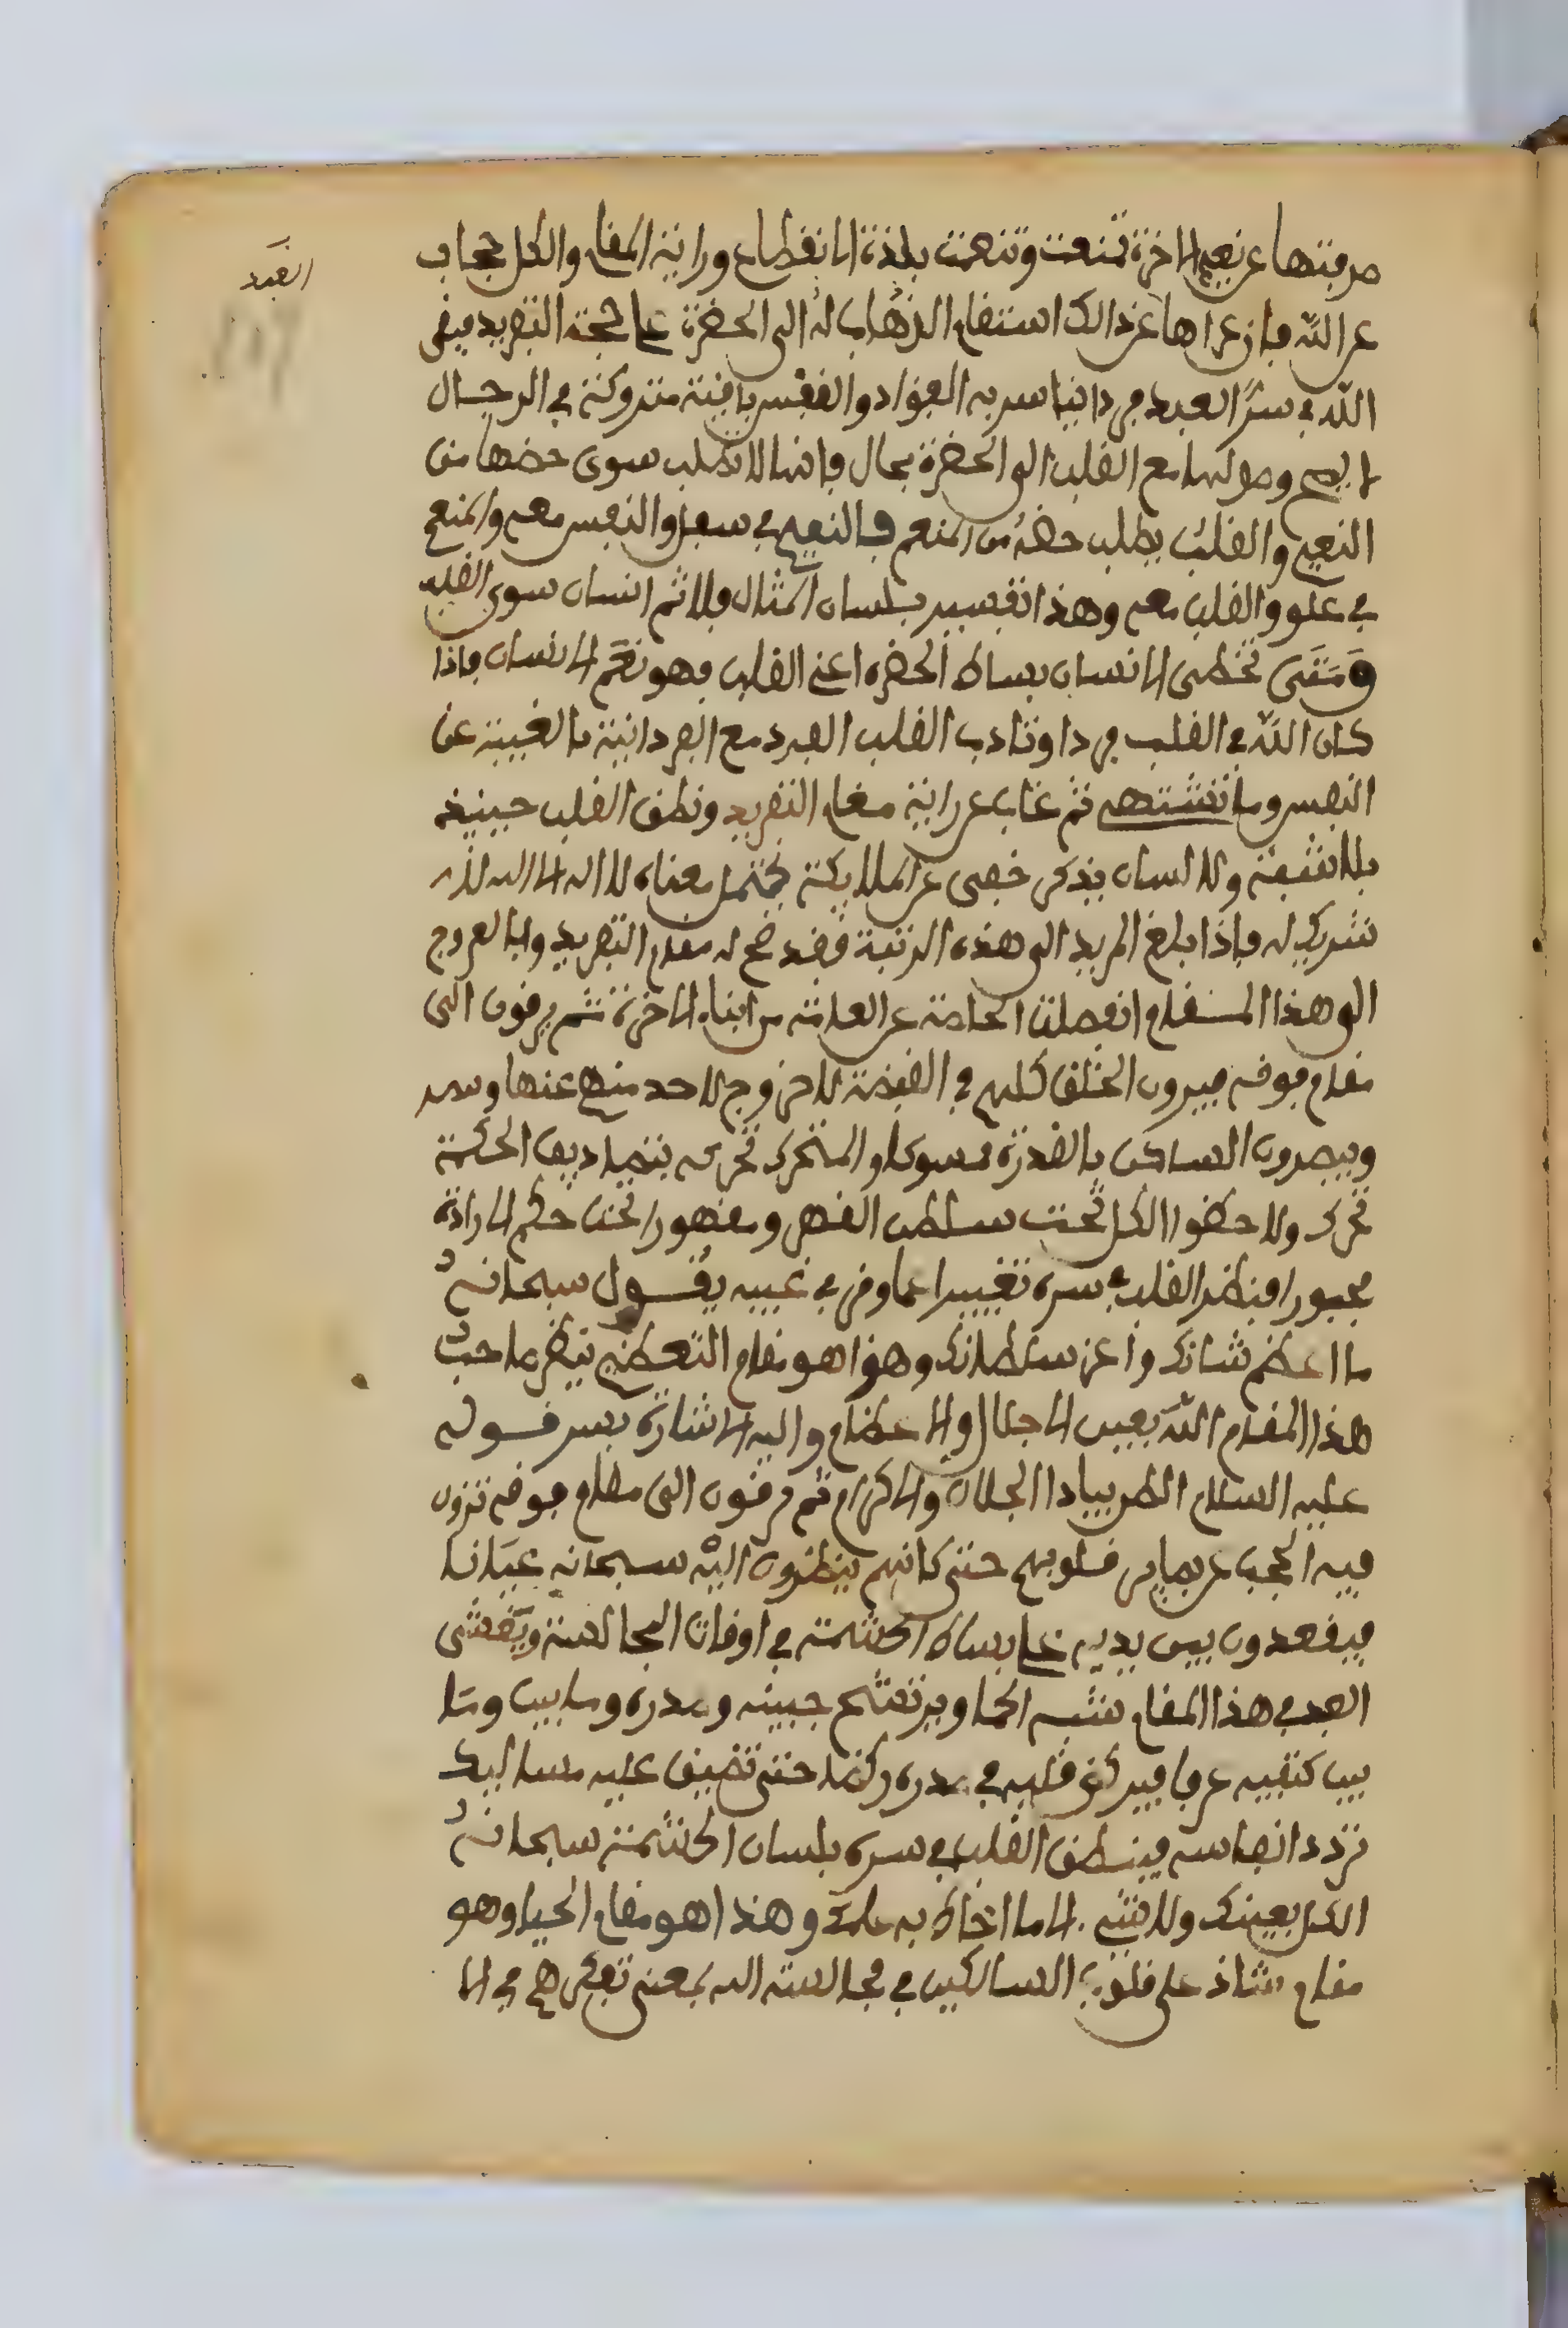 صرفتها عن نعيم الاخرة تمنعت وتنعمت بلذة الانقطاع ورانية المقام والكل حجاب
عن الله فان عراها عن ذالك استقام الذهاب له الى الحضرة على محجة التفريد فيبقى
الله في سر العبد فردانيا سر به الفؤاد والنفس باقية متروكة في الرحال
لا يصح وصولها مع القلب الى الحضرة بحال فانها لا تطلب سوى حضها من
النعيم والقلب يطلب حضه من المنعم فالنعيم في سفل والنفس معه والمنعم
في علو والقلب معه وهذا تفسير بلسان المثال فلا ثم انسان سوى القلب
ومتى تخطى الانسان بساط الحضرة اعني القلب فهو نعم الانسان فاذا
كان الله في القلب فردا وتادب القلب الفرد مع الفردانية بالغيبة عن
النفس وما تشتهي ثم غاب عن رانية مقام التفريد ونطق القلب حينيذ
بلا شفة ولا لسان بذكر خفي عن الملايكة يحتمل معناه لا اله الا الله لا
شريك له فاذا بلغ المريد الى هذه الرتبة فقد صح له مقام التفريد وبالعروج
الى هذا المقام انفصلت الخاصة عن العامة من ابناء الاخرة ثم يرقون الى
مقام فوقه فيرون الخلق كلهم في القبضة لا خروج لاحد منهم عنها
ويبصرون الساكن بالقدرة مسوكا والمتحرك تحركه بتصاريف الحكمة
تحرك ولاحظوا الكل تحت سلطن القهر ومقهورا تحت حكم الارادة
مجبورا فينظر القلب في سره تغييرا عما وقر في غيبه يقول سبحانه
ما اعظم شانك واعز سلطانك وهذا هو مقام التعظيم ينظر صاحب
هذا المقام الله بعين الاجلال والاعظام واليه الاشارة بسر قوله
عليه السلام الظوا بياذا الجلال والاكرام ثم يرقون الى مقام فوقه تزول
فيه الحجب عن بصاير قلوبهم حتى كانهم ينظرون اليه سبحانه عيانا
فيقعدون بين يديه على بساط الحشمة في اوقات المجالسة ويغشى
العبد في هذا المقام شبه الحما ويرتشح جبينه وصدره وما بين وما
بين كتفيه عرقا فيركض قلبه في صدره ركضا حتى تضيق عليه مسالك
تردد انفاسه فينطق القلب في سره بلسان الحشمة سبحانه
الكل بعينك ولا شيء الا ما احاط به علمك وهذا هو مقام الحيا وهو
مقام شاذ على قلوب السالكين في مجالسة الله بمعنى تعكر هم في الا
العبد